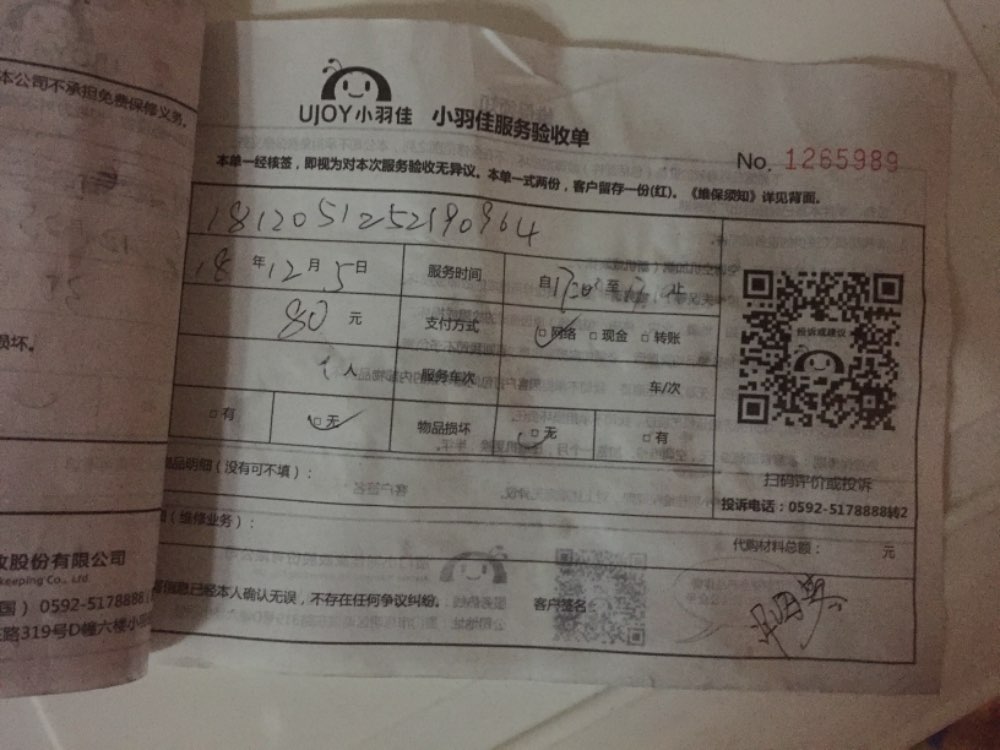 本公司不承担免费保修义务。
UJOY小羽佳 小羽佳服务验收单
No. 1265989
本单一经核签，即视为对本次服务验收无异议。本单一式两份，客户留存一份(红)。《维保须知》详见背面。
1812051252190964
18年12月5日 服务时间 自17:00至 止
80元 支付方式 □网络 □现金 □转账
投诉或建议
1人 服务车次 车/次
□有 □无 物品损坏 □无 □有
损坏。
品明细（没有可不填）：
扫码评价或投诉
投诉电话：0592-5178888转2
（维修业务）：
代购材料总额： 元
政股份有限公司
keeping Co., Ltd
信息已经本人确认无误，不存在任何争议纠纷。 客户签名：
国）0592-5178888
路319号D幢六楼小